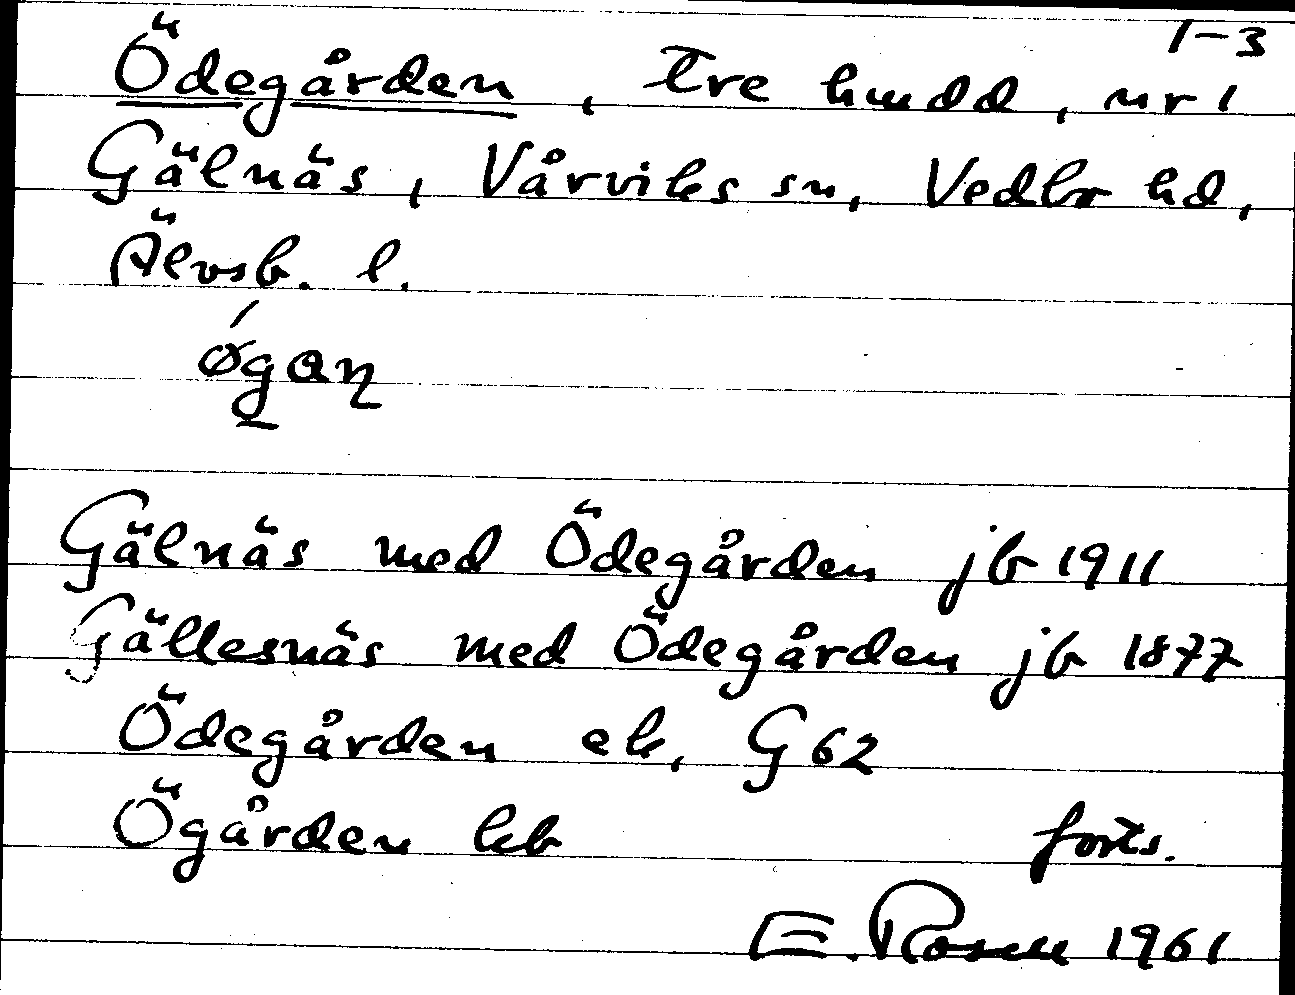 1-3
Ödegården, tre hmdd, nr 1
Gälnäs, Vårviks sn, Vedbo hd,
Älvsb. l.
Gälnäs med Ödegården jb 1911
Gällesnäs med Ödegården jb 1877
Ödegården ek, G62
Ögården kb forts.
E. Rosell 1961